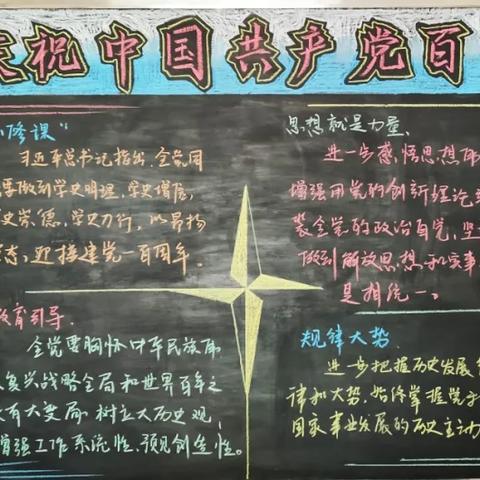 庆祝中国共产党百
修课"
习近平总书记指出,全党同
要做到学史明理、学史增信、
史崇德、学史力行,以昂扬
态,迎接建党一百周年。
教育引导.
全党要胸怀中华民族伟
复兴战略全局和世界百年之
有大变局 树立大历史观,
增强工作系统性、预见创造性。
思想就是力量.
进一步感悟思想伟
增强用党的创新理论
装全党的政治自觉,坚
做到解放思想和实事
是相统一。
规律大势.
进一步把握历史发展
律和大势,始终掌握党
国家事业发展的历史主动